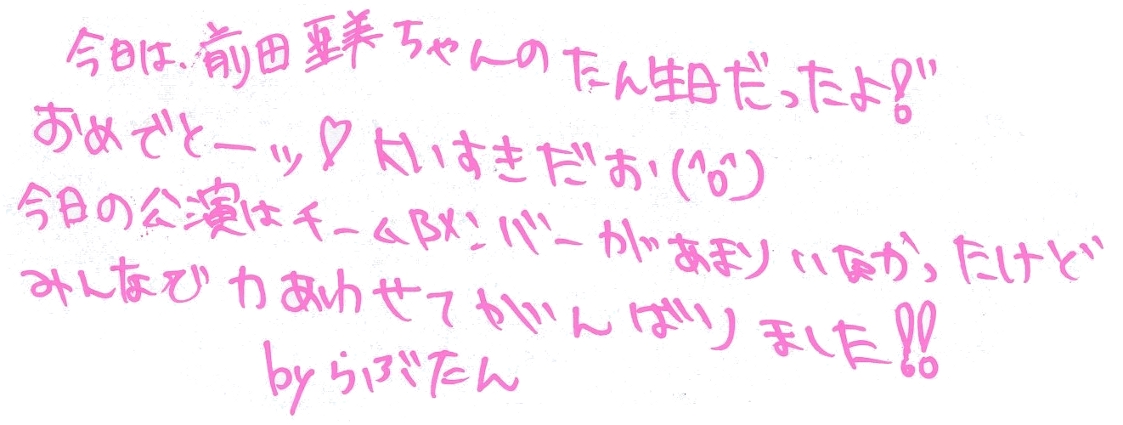 今日は、前田亜美ちゃんのたん生日だったよ!"
おめでとーッ♡大いすきだお(^o^)
今日の公演はチームBメンバーがあまりいなかったけど
みんなで力あわせてがんばりました!!
byらぶたん